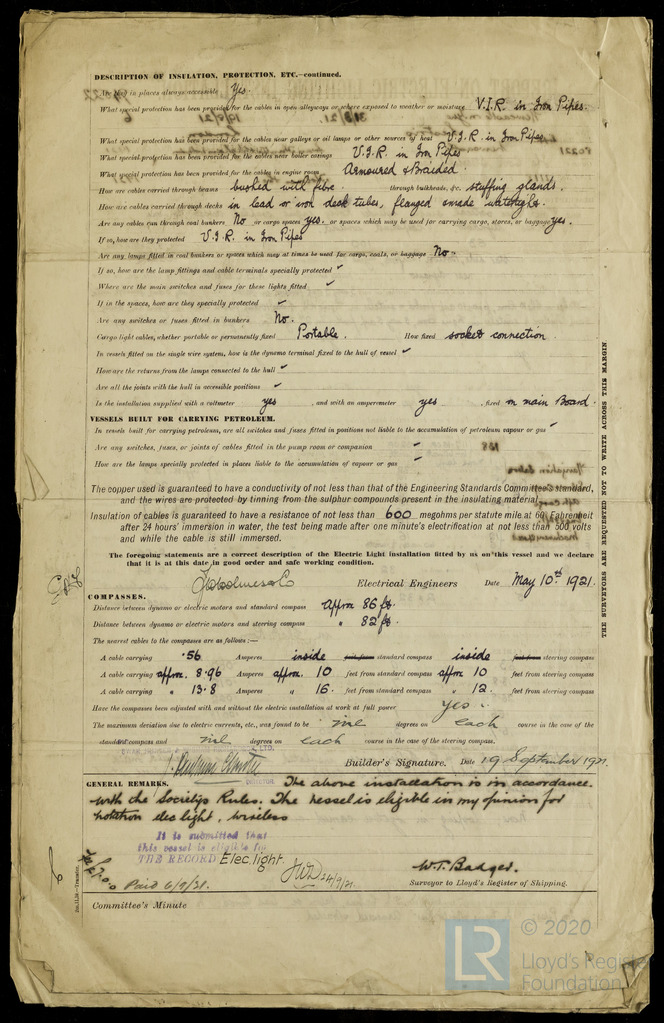 DESCRIPTION OF INSULATION, PROTECTION, ETC.—continued.
in places always accessible Yes.
What special protection has been provided for the cables in open alleyways or where exposed to weather or moisture V.I.R. in Iron Pipes.
What special protection has been provided for the cables near galleys or oil lamps or other sources of heat V.I.R. in Iron Pipes
What special protection has been provided for the cables near boiler casings V.I.R. in Iron Pipes
What special protection has been provided for the cables in engine room Armoured & Braided.
How are cables carried through beams bushed with fibre. through bulkheads, &c. stuffing glands.
How are cables carried through decks in lead or iron deck tubes, flanged & made watertight.
Are any cables run through coal bunkers No or cargo spaces yes. or spaces which may be used for carrying cargo, stores, or baggage yes.
If so, how are they protected V.I.R. in Iron Pipes
Are any lamps fitted in coal bunkers or spaces which may at times be used for cargo, coals, or baggage No.
If so, how are the lamp fittings and cable terminals specially protected ✓
Where are the main switches and fuses for these lights fitted ✓
If in the spaces, how are they specially protected ✓
Are any switches or fuses fitted in bunkers No.
Cargo light cables, whether portable or permanently fixed Portable. How fixed socket connection
In vessels fitted on the single wire system, how is the dynamo terminal fixed to the hull of vessel ✓
How are the returns from the lamps connected to the hull ✓
Are all the joints with the hull in accessible positions ✓
Is the installation supplied with a voltmeter yes , and with an amperemeter yes , fixed on main Board.
VESSELS BUILT FOR CARRYING PETROLEUM.
In vessels built for carrying petroleum, are all switches and fuses fitted in positions not liable to the accumulation of petroleum vapour or gas
Are any switches, fuses, or joints of cables fitted in the pump room or companion
How are the lamps specially protected in places liable to the accumulation of vapour or gas
The copper used is guaranteed to have a conductivity of not less than that of the Engineering Standards Committee's standard,
and the wires are protected by tinning from the sulphur compounds present in the insulating material.
Insulation of cables is guaranteed to have a resistance of not less than 600 megohms per statute mile at 60° Fahrenheit
after 24 hours' immersion in water, the test being made after one minute's electrification at not less than 500 volts
and while the cable is still immersed.
The foregoing statements are a correct description of the Electric Light installation fitted by us on this vessel and we declare
that it is at this date in good order and safe working condition.
Holmes & Co Electrical Engineers Date May 10th 1921.
COMPASSES.
Distance between dynamo or electric motors and standard compass Approx 86 ft.
Distance between dynamo or electric motors and steering compass " 82 ft.
The nearest cables to the compasses are as follows:—
A cable carrying .56 Amperes inside feet from standard compass inside feet from steering compass
A cable carrying approx. 8.96 Amperes approx. 10 feet from standard compass approx 10 feet from steering compass
A cable carrying " 13.8 Amperes " 16. feet from standard compass " 12. feet from steering compass
Have the compasses been adjusted with and without the electric installation at work at full power Yes
The maximum deviation due to electric currents, etc., was found to be nil degrees on each course in the case of the
standard compass and nil degrees on each course in the case of the steering compass.
Builder's Signature. Date 19 September 1921.
GENERAL REMARKS. The above installation is in accordance.
with the Society's Rules. The vessel is eligible in my opinion for
notation elec light, wireless
It is submitted that
this vessel is eligible for
THE RECORD Elec. light.
24/9/21
W.T. Badger.
Surveyor to Lloyd's Register of Shipping.
Committee's Minute
THE SURVEYORS ARE REQUESTED NOT TO WRITE ACROSS THIS MARGIN
© 2020
LR
Lloyd's Register
Foundation